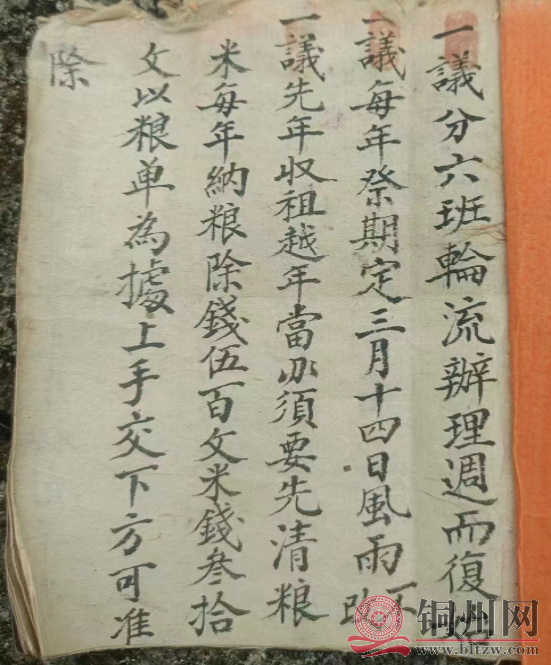 一議分六班輪流辦理週而復始
一議每年祭期定三月十四日風雨不改
一議先年収租越年當办須要先清粮
米每年納粮除錢伍百文米錢叁拾
文以粮单為據上手交下方可准
除
铜州网
www.bltzw.com